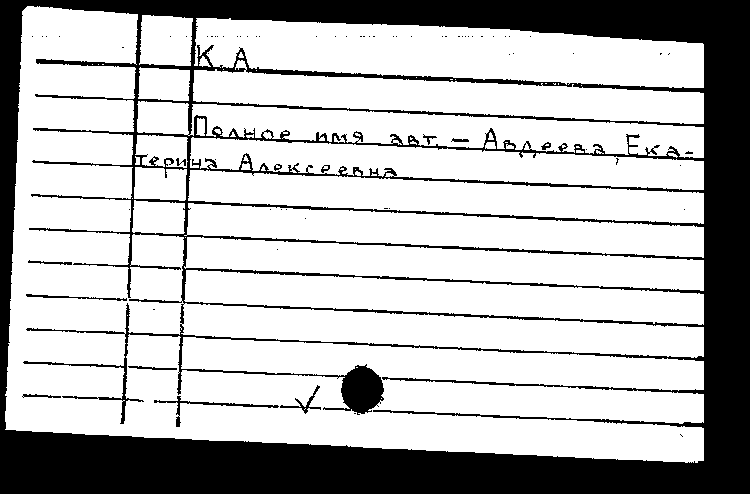 К. А.
Полное имя авт. — Авдеева, Ека-
терина Алексеевна